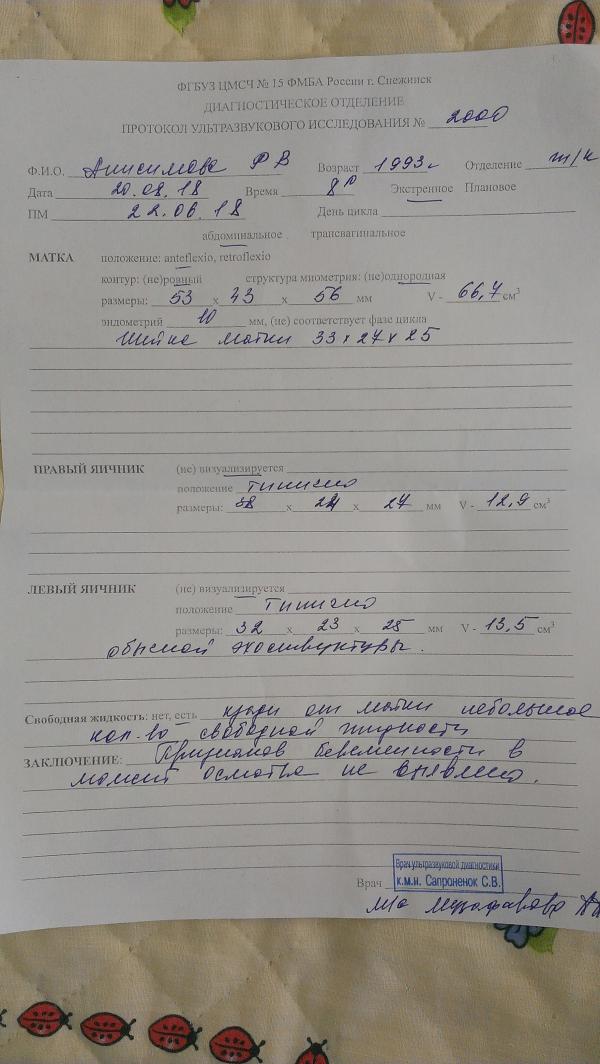 ФГБУЗ ЦМСЧ № 15 ФМБА России г. Снежинск
ДИАГНОСТИЧЕСКОЕ ОТДЕЛЕНИЕ
ПРОТОКОЛ УЛЬТРАЗВУКОВОГО ИССЛЕДОВАНИЯ № 2000
Ф.И.О. Анисимова Ф В Возраст 1993 Отделение ж/к
Дата 20.08.18 Время 8 Экстренное Плановое
ПМ 22.06.18 День цикла
абдоминальное трансвагинальное
МАТКА положение: anteflexio, retroflexio
контур: (не)ровный структура миометрия: (не)однородная
размеры: 53 x 43 x 56 мм V - 66,7 см³
эндометрий 10 мм, (не) соответствует фазе цикла
Шейка матки 33 x 27 x 25
ПРАВЫЙ ЯИЧНИК (не) визуализируется
положение типично
размеры: x 24 x 27 мм V - 12,9 см³
ЛЕВЫЙ ЯИЧНИК (не) визуализируется
положение типично
размеры: 32 x 23 x 25 мм V - 13,5 см³
обычной эхоструктуры.
Свободная жидкость: нет, есть кзади от матки небольшое
кол-во свободной жидкости
ЗАКЛЮЧЕНИЕ: Признаков беременности в
момент осмотра не выявлено.
Врач ультразвуковой диагностики
Врач к.м.н. Сапроненок С.В.
м/с